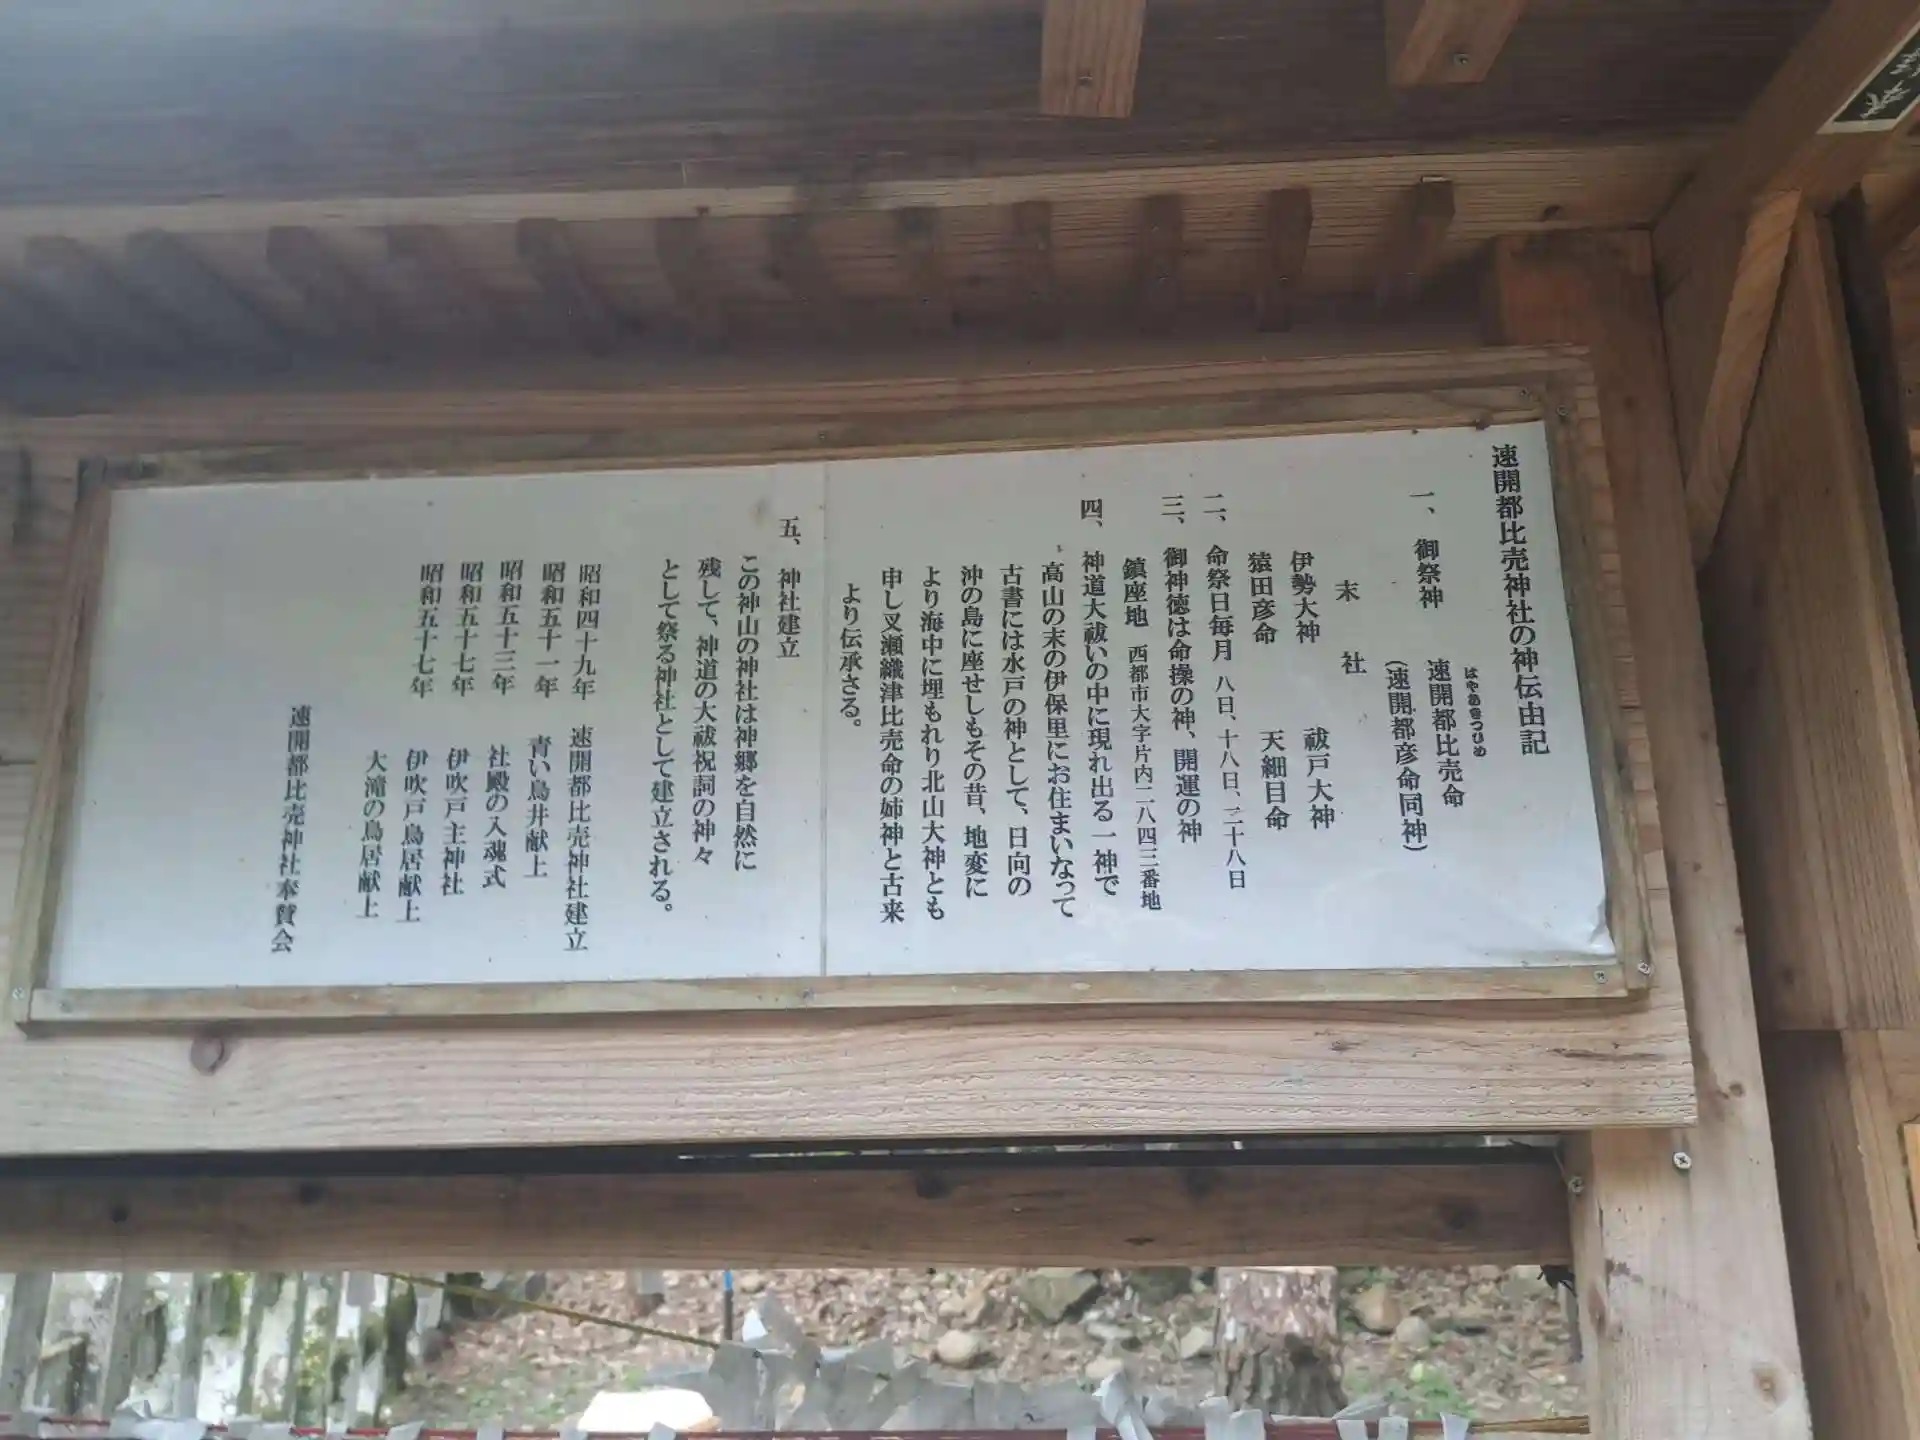 速開都比売神社の神伝由記
一、御祭神　速開都比売命
はやあきつひめ
（速開都彦命同神）
末　社
伊勢大神　祓戸大神
猿田彦命　天細目命
二、命祭日毎月　八日、十八日、二十八日
三、御神徳は命操の神、開運の神
鎮座地　西都市大字片内二八四三番地
四、神道大祓いの中に現れ出る一神で
高山の末の伊保里にお住まいなって
古書には水戸の神として、日向の
沖の島に座せしもその昔、地変に
より海中に埋もれり北山大神とも
申し又瀬織津比売命の姉神と古来
より伝承さる。
五、神社建立
この神山の神社は神郷を自然に
残して、神道の大祓祝詞の神々
として祭る神社として建立される。
昭和四十九年　速開都比売神社建立
昭和五十一年　青い鳥井献上
昭和五十三年　社殿の入魂式
昭和五十七年　伊吹戸主神社
昭和五十七年　伊吹戸鳥居献上
大滝の鳥居献上
速開都比売神社奉賛会